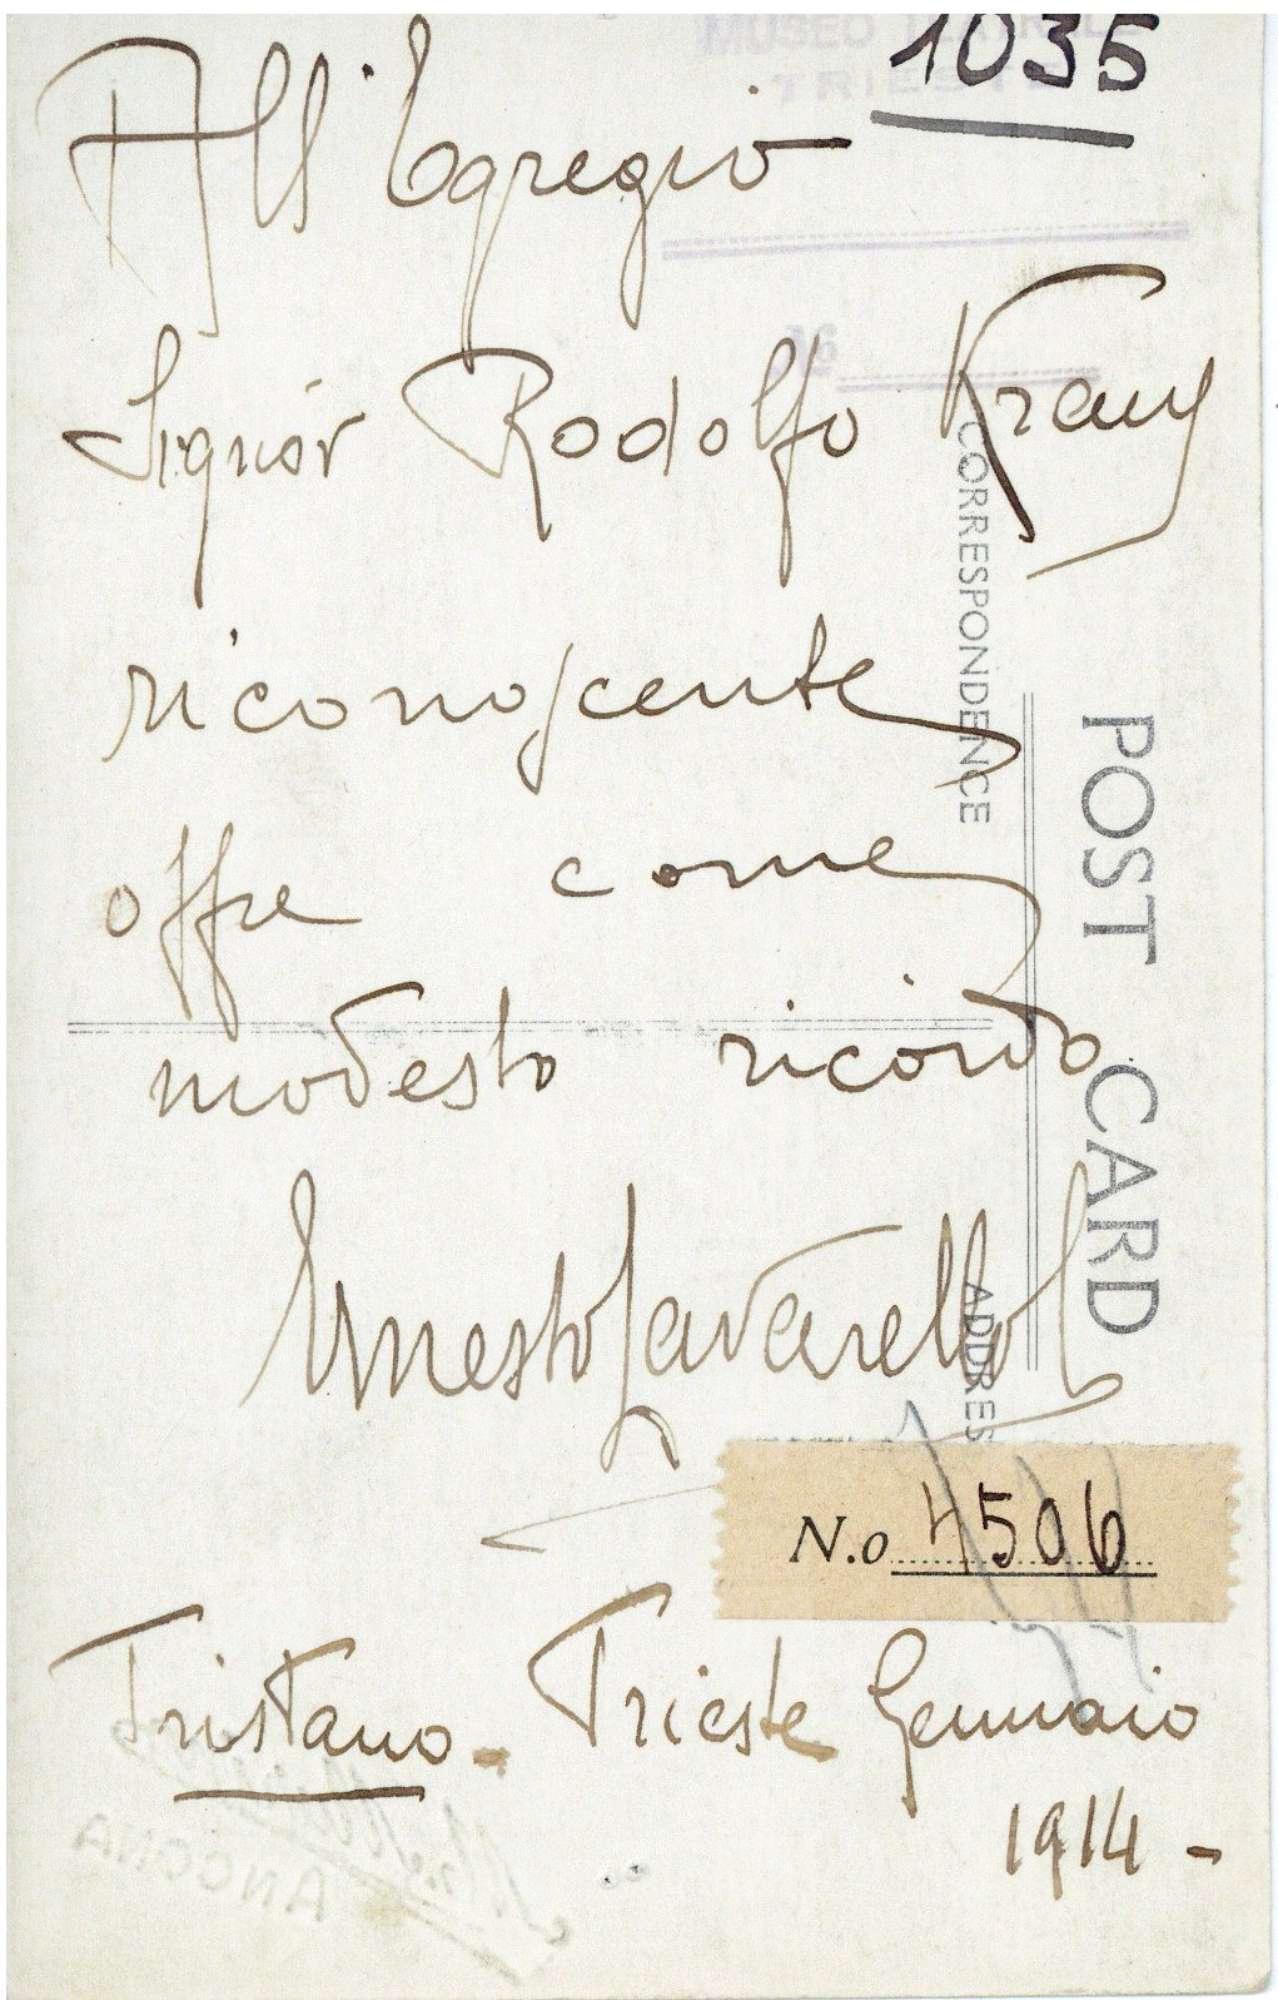 MUSEO TEATRALE
TRIESTE
1035
All'Egregio
16
Signor Rodolfo Kraus
riconoscente
offre come
modesto ricordo
Ernesto Lavarello
N.o 4506
Tristano - Trieste Gennaio
1914 -
POST CARD
CORRESPONDENCE
ADDRES
ANCONA